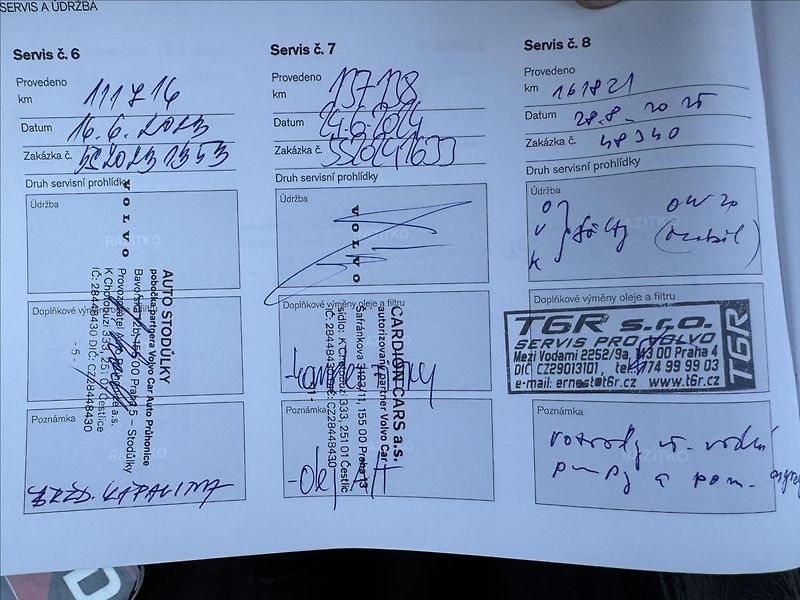 SERVIS A ÚDRŽBA
Servis č. 6
Provedeno
km 111716
Datum 16.6.2023
Zakázka č. SS20231353
Druh servisní prohlídky
Údržba
RAZÍTKO
VOLVO
AUTO STODŮLKY
pobočka partnera Volvo Car Auto Průhonice
Bavorská 720, 155 00 Praha 5 – Stodůlky
K Chotobuzi 333, 251 01 Čestlice
IČ: 28448430 DIČ: CZ28448430
- 5 -
Doplňkové výměny oleje a filtru
Poznámka
BRZD. KAPALINA
Servis č. 7
Provedeno
km 137118
Datum 24.6.2024
Zakázka č. SS20241633
Druh servisní prohlídky
Údržba
RAZÍTKO
VOLVO
CARDION CARS a.s.
autorizovaný partner Volvo Car
Šafránkova 1238/11, 155 00 Praha 13
sídlo: K Chotobuzi 333, 251 01 Čestlice
IČ: 28448430, DIČ: CZ28448430
Doplňkové výměny oleje a filtru
Poznámka
Servis č. 8
Provedeno
km 161821
Datum 28.8.2025
Zakázka č. 48340
Druh servisní prohlídky
Údržba
O OW20
V filtry
K
Doplňkové výměny oleje a filtru
T6R s.r.o.
T6R
SERVIS PRO VOLVO
Mezi Vodami 2252/9a, 143 00 Praha 4
DIČ CZ29013101, tel. 774 99 99 03
e-mail: ernest@t6r.cz www.t6r.cz
Poznámka
RAZÍTKO
rozvody vč. vodní
pumpy a pom.